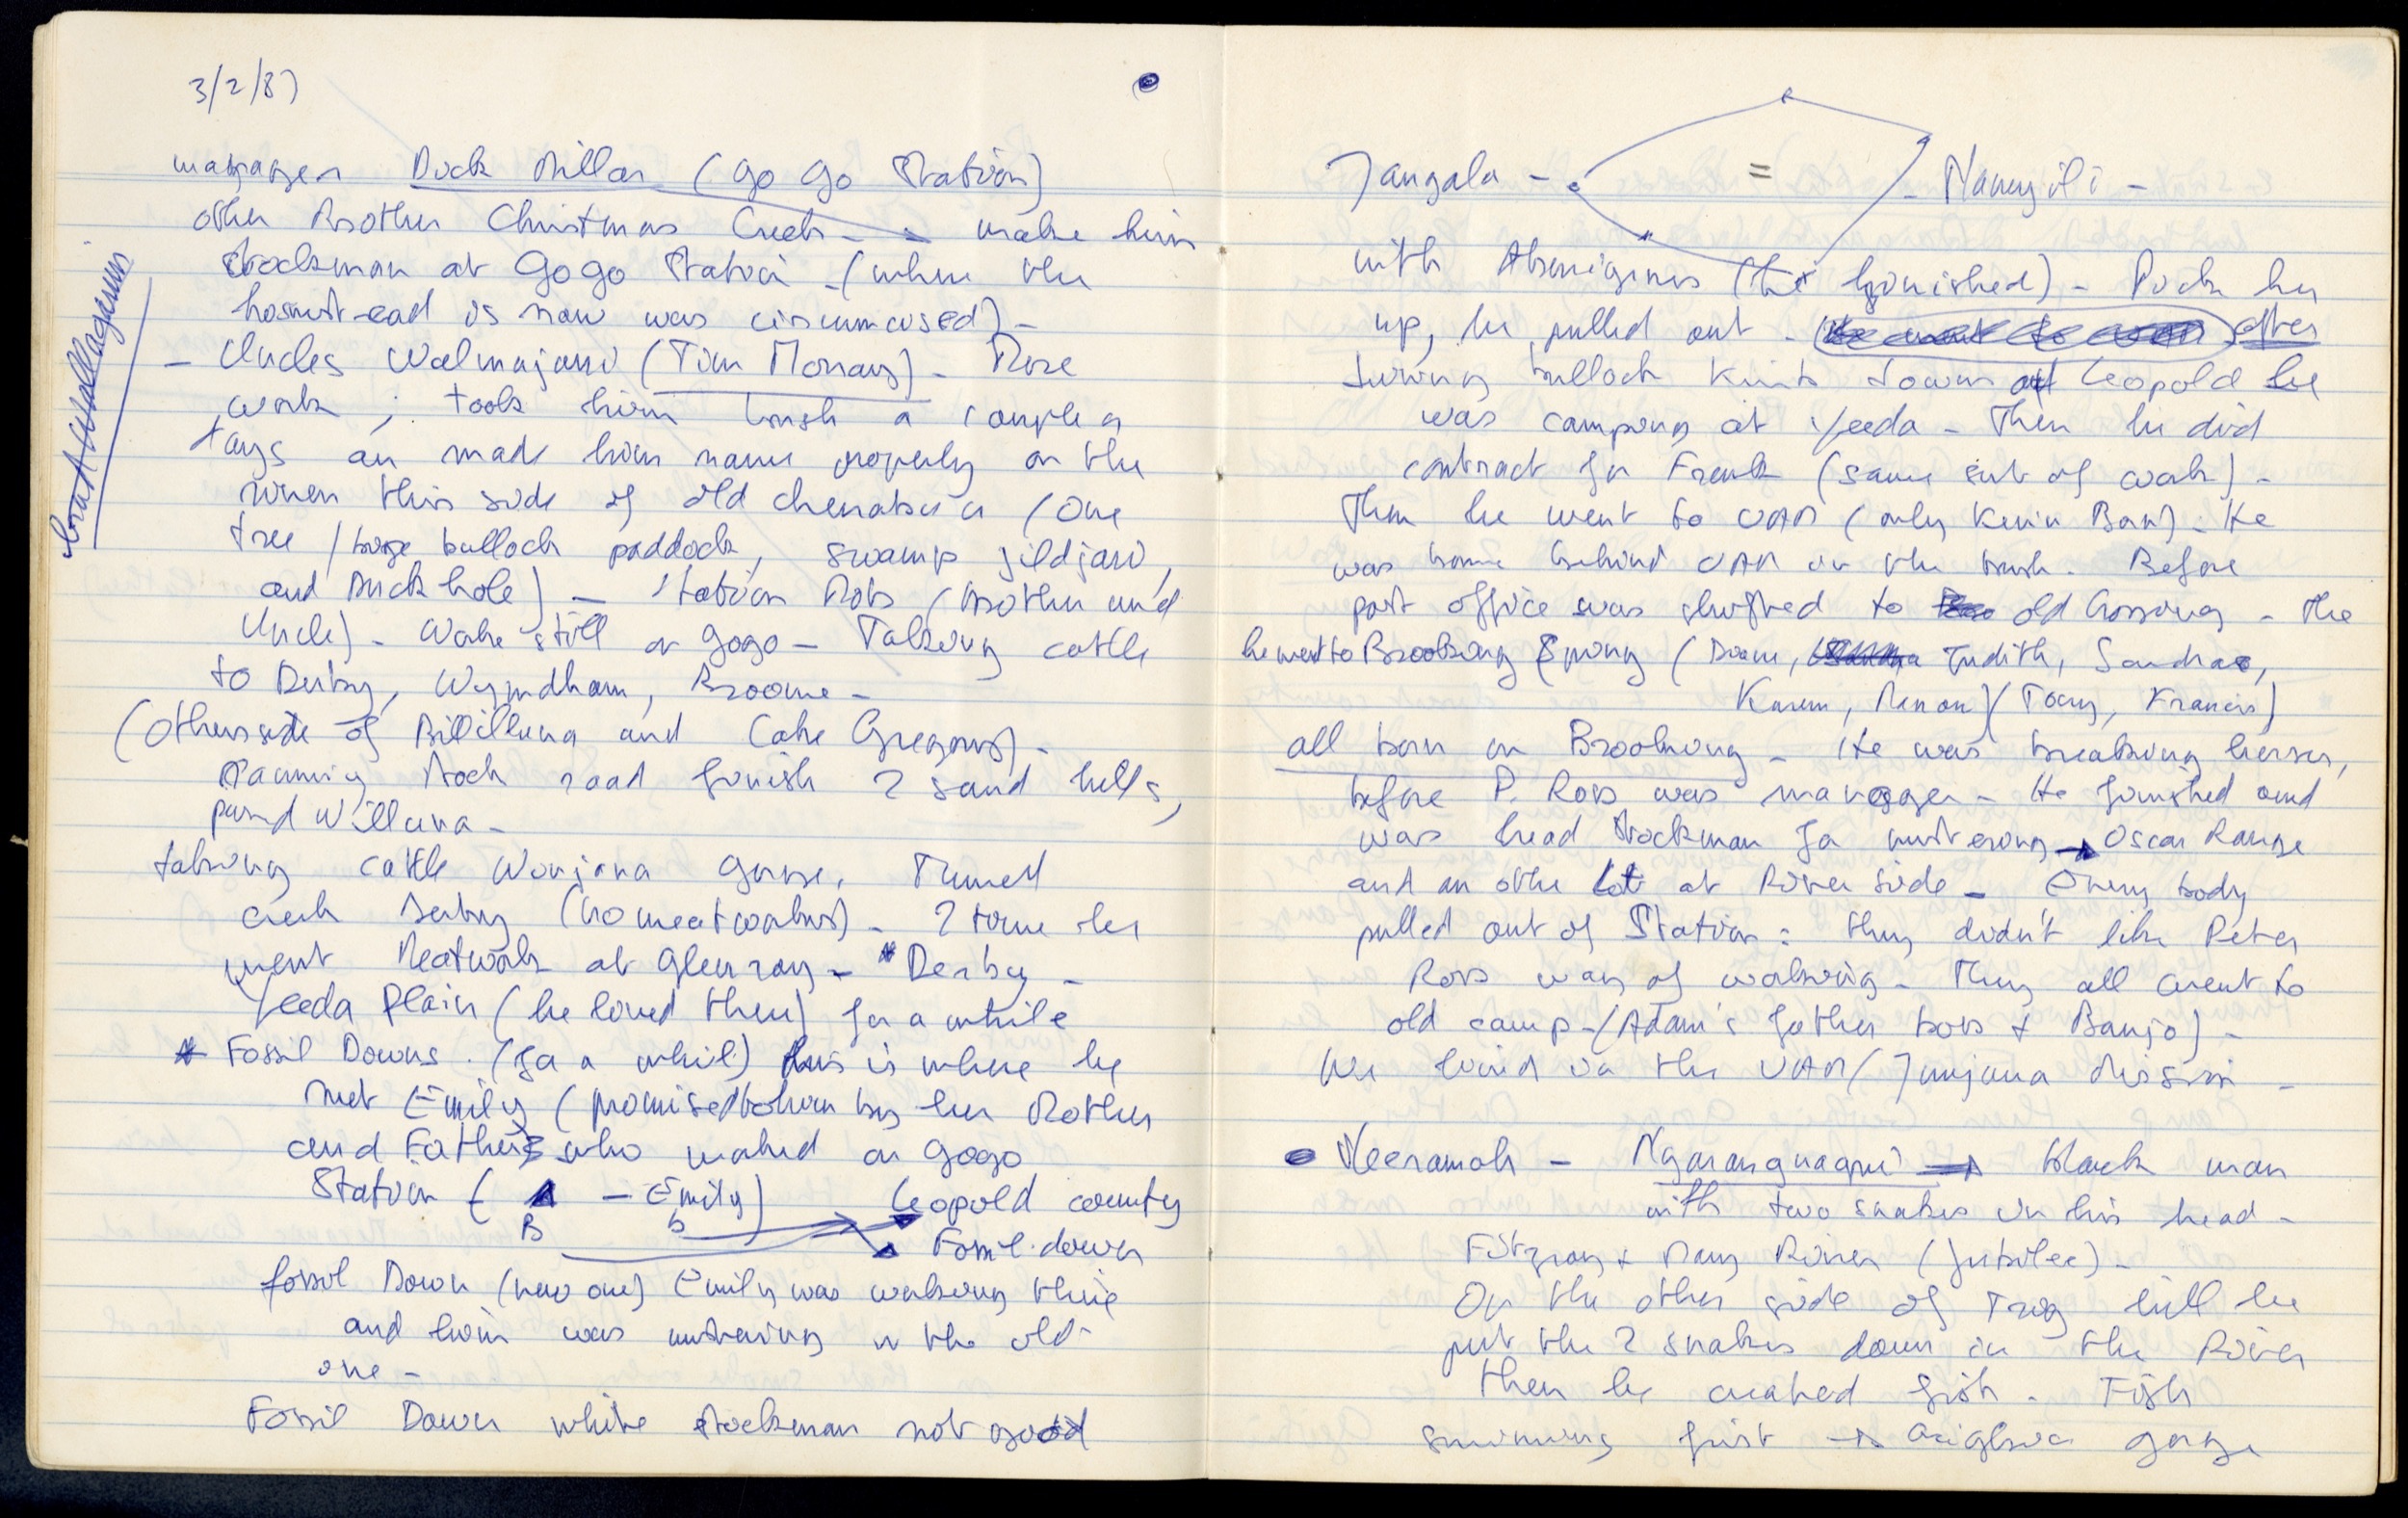 3/2/87
manager Dick Millar (Go Go Station)
other Brother Christmas Creek - make him
stockman at Gogo Station - (where the
homestead is now was circumcised) -
born at Wallagarim
- Uncles Walmajarri (Tim Morray) - Rose
work ; took him bush a couple a
days an made him name properly on the
river this side of old cherrabun (One
tree / horse bullock paddock, swamp jildjari,
and Duck hole) - Station Bob (brother and
Uncle) - Work still on Gogo - Taking cattle
to Derby, Wyndham, Broome -
(otherside of Billiluna and Lake Gregory) -
Canning stock road finish 2 sand hills,
pund Willuna -
taking cattle Winjana Gorge, Tunnel
creek Derby (no meatworks) - 2 time he
went Meatwork at Glenroy - * Derby -
Yeeda Plain (he loved there) for a while
* Fossil Downs . (for a while) this is where he
met Emily (promised to him by her Mother
and Father who worked on Gogo
Station ( - Emily) Leopold country
B b Fossil down
fossil Down (new one) Emily was working there
and him was mustering in the old
one -
Fossil Down white stockman not good
Jangala - = - Nangili -
with Aborigines (he finished) - Pick her
up, he pulled out - after
turning bullock Kimb down at Leopold he
was camping at Yeeda - Then he did
contract for Frank (same sort of work) -
Then he went to UAM (only Kevin Born) - He
was borne behind UAM in the bush. Before
post office was shifted to old Crossing - The
he went to Brooking Spring (Diane, Judith, Sandra,
Karen, Manon) (Tony, Francis)
all born on Brooking - He was breaking horses,
before P. Ross was manager - He finished and
was head stockman for mustering → Oscar Range
and an other lot at River side - Every body
pulled out of Station : they didn't like Peter
Ross way of working - They all went to
old camp - (Adam's father boss + Banjo) -
We lived in the UAM / Junjuwa Mission -
• Neeramah - Ngarangnagni → black man
with two snakes in his head -
Fitzroy + Mary River (Jubilee) -
On the other side of Trig hill he
put the 2 snakes down in the River
then he created fish - Fish
swimming first → Geigkie gorge